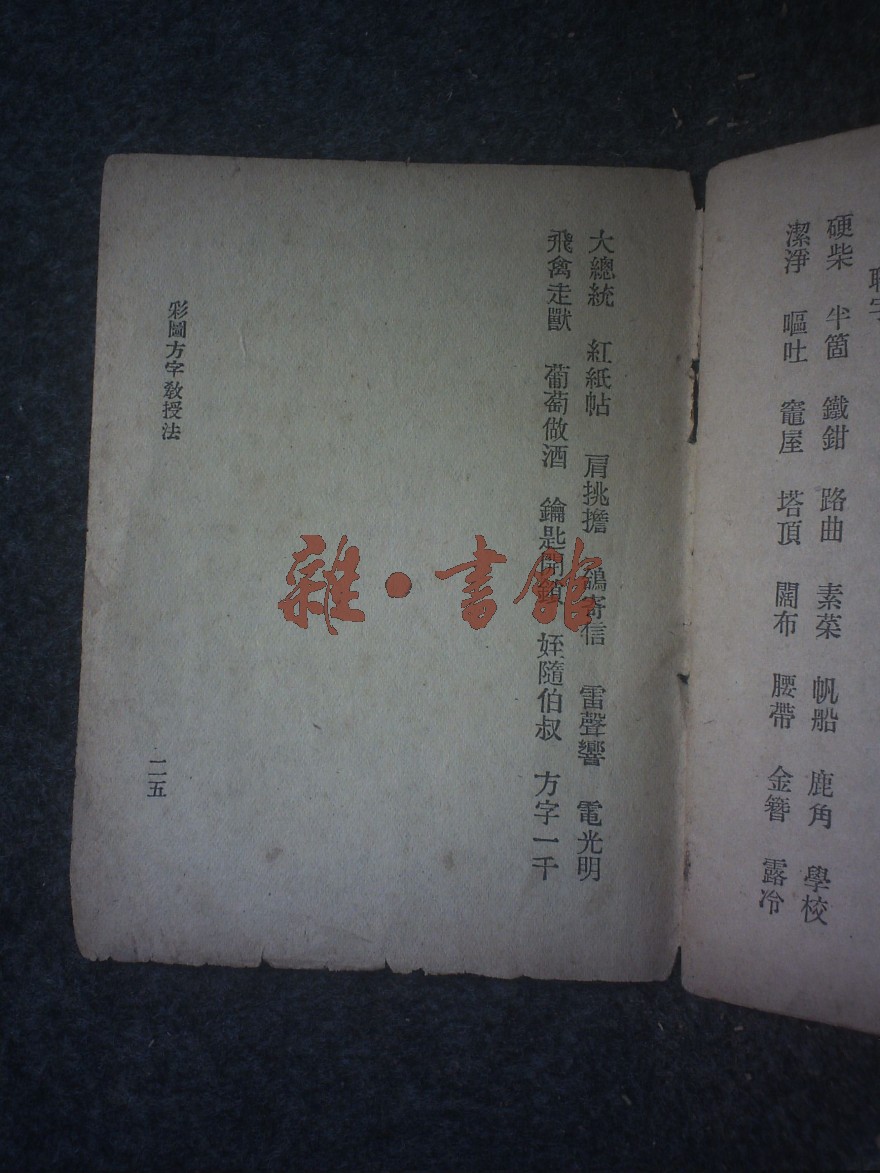 聯字
硬柴 半箇 鐵鉗 路曲 素菜 帆船 鹿角 學校
潔淨 嘔吐 竈屋 塔頂 闊布 腰帶 金簪 露冷
大總統 紅紙帖 肩挑擔 鴿寄信 雷聲響 電光明
飛禽走獸 葡萄做酒 鑰匙開鎖 姪隨伯叔 方字一千
彩圖方字教授法
二一五
雜·書館